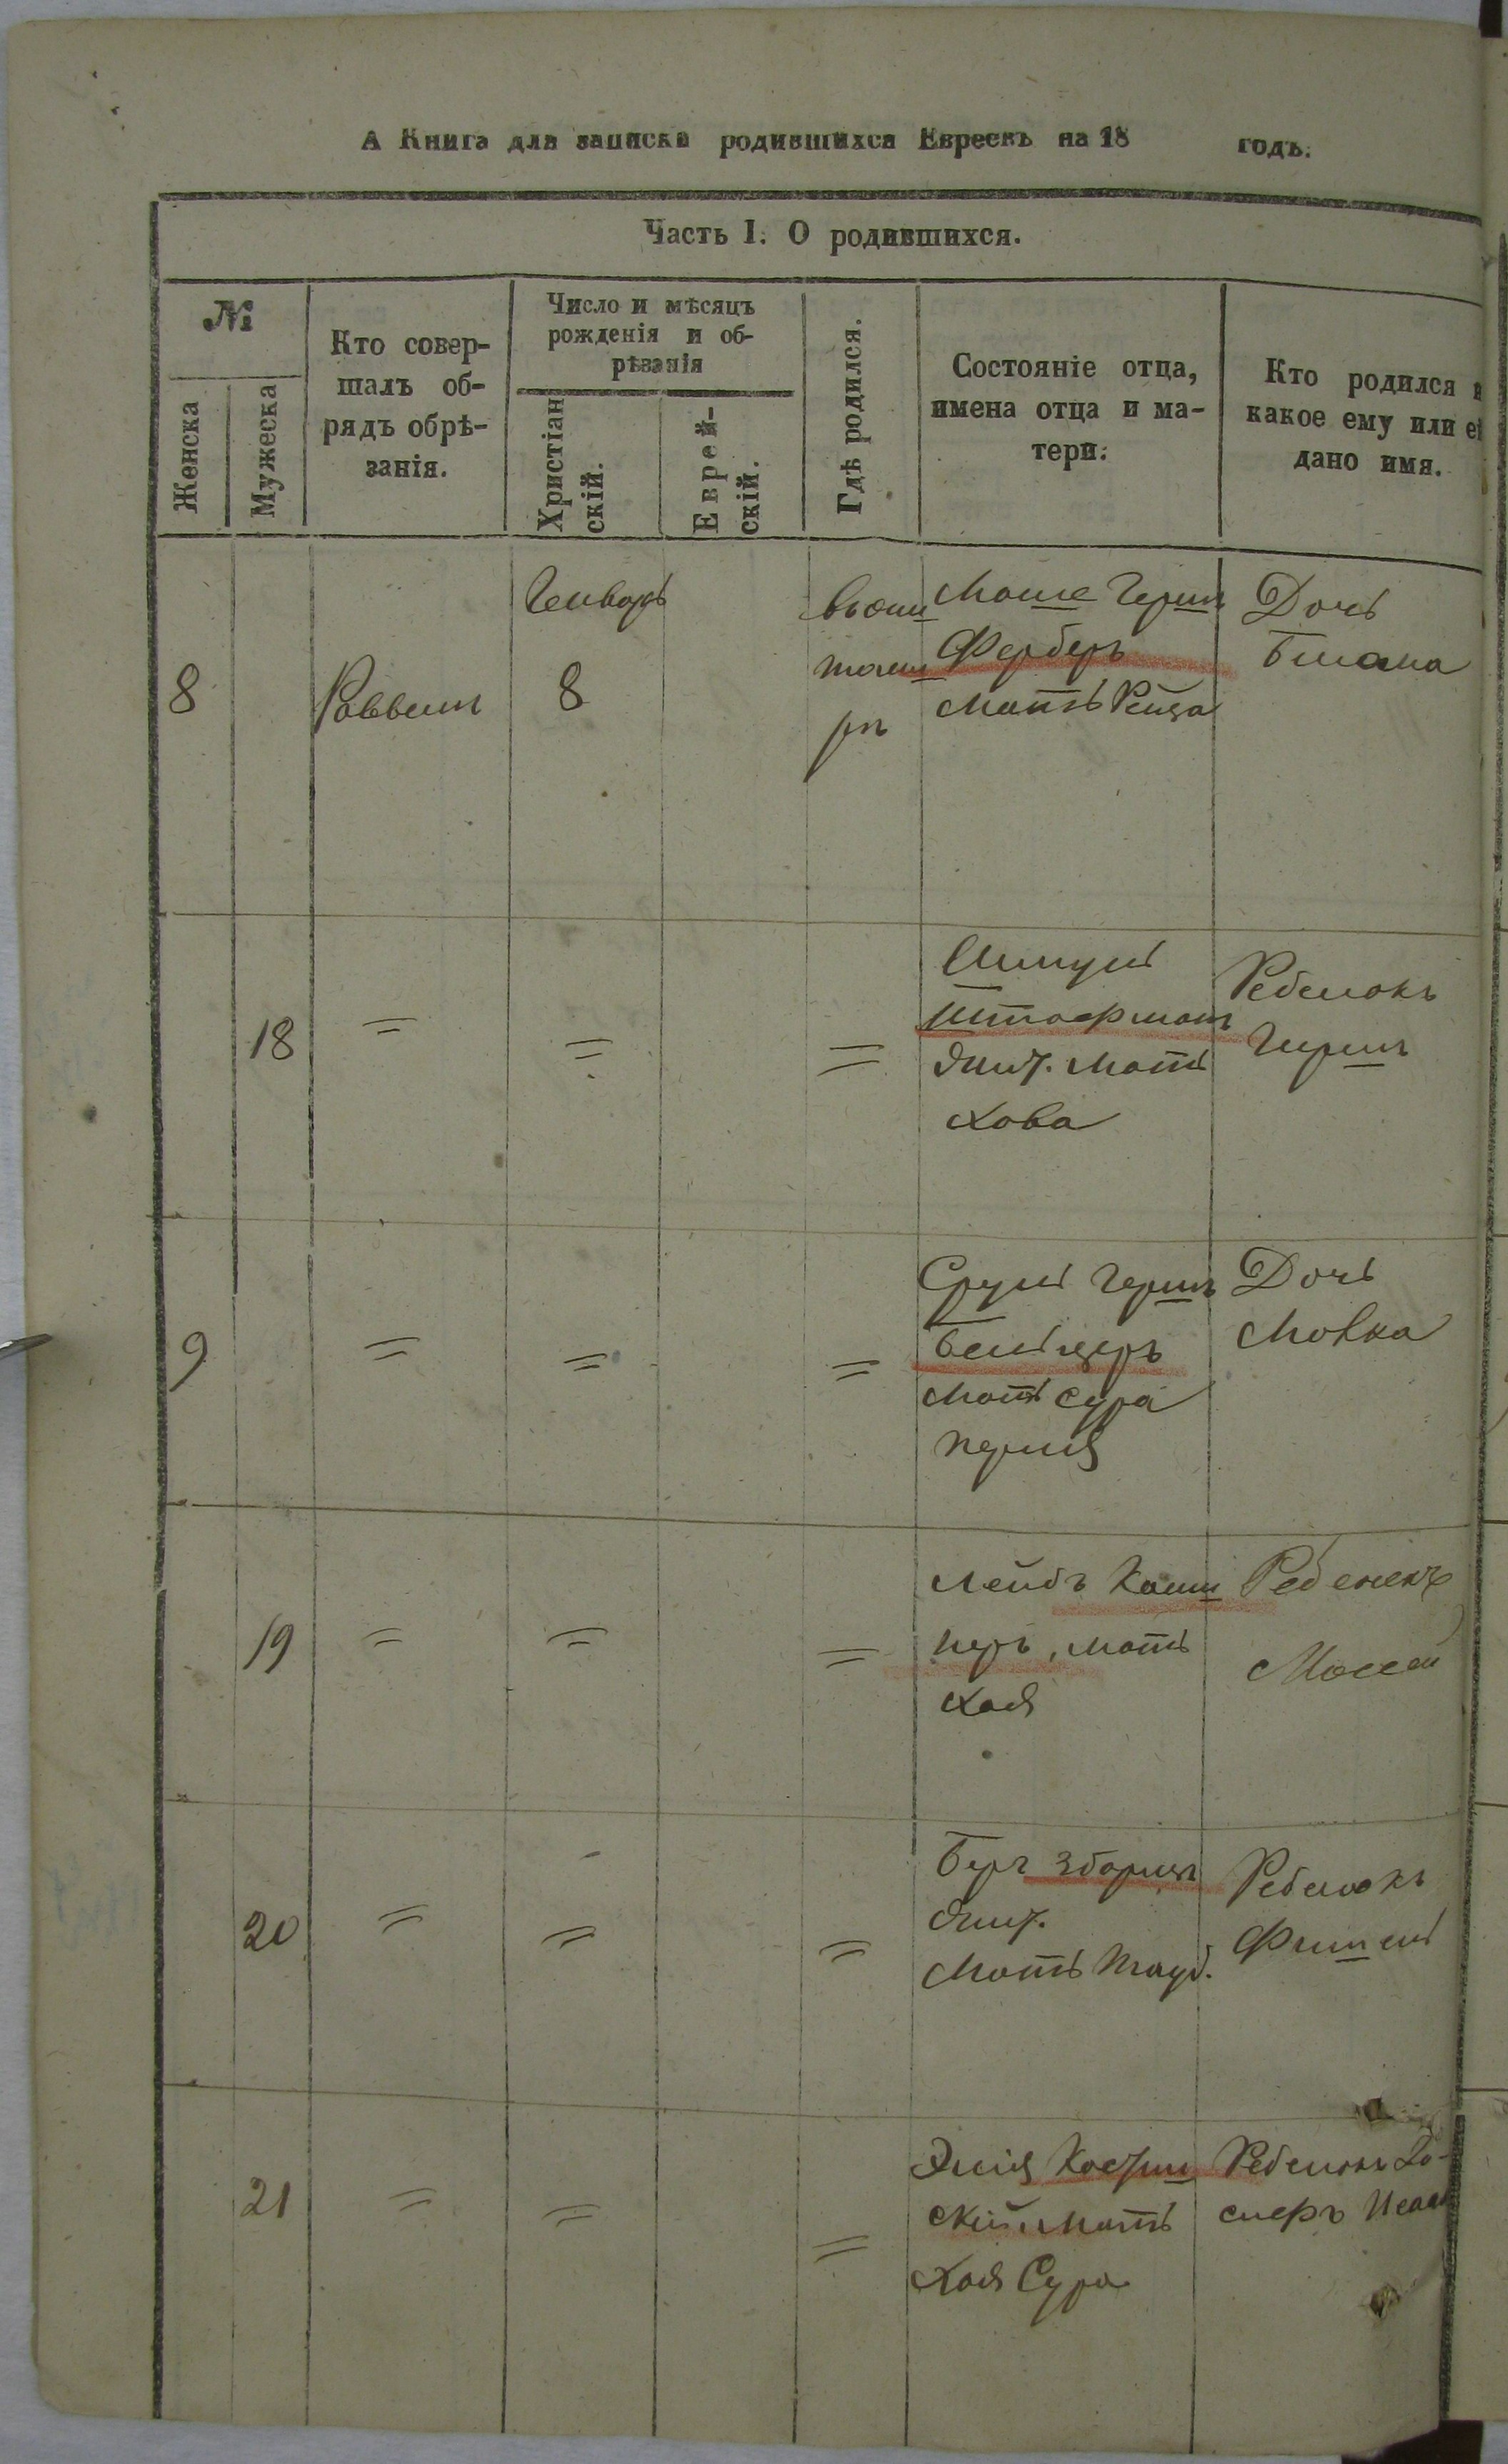 А Книга для записки родившихся Евреевъ на 18 годъ.
Часть I. О родившихся.
№
Женска
Мужеска
Кто совер-
шалъ об-
рядъ обрѣ-
занія.
Число и мѣсяцъ
рожденія и об-
рѣзанія
Христіан
скій.
Еврей-
скій.
Гдѣ родился.
Состояніе отца,
имена отца и ма-
тери.
Кто родился и
какое ему или ей
дано имя.
8
Раввинъ
Генварь
8
Моше Герш
Ферберъ
Мать Рейза
Дочь
18
=
=
=
Шмуль
Штофманъ
Мать
Хова
Ребенокъ
Гершъ
9
=
=
=
Сруль Гершъ
Бельцеръ
Мать Сура
Перля
Дочь
Мовка
19
=
=
=
Лейбъ Каш
неръ, мать
Хая
Ребенокъ
Мосей
20
=
=
=
Беръ Зборицъ
Мать Тауб.
Ребенокъ
Фишель
21
=
=
=
Элія
скій. Мать
Хая Сура
Ребенокъ Іо-
сифъ